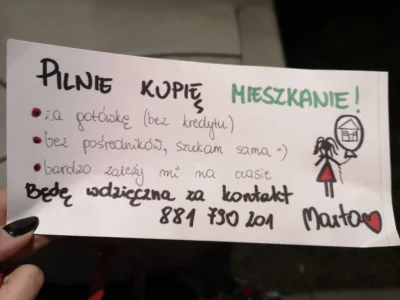 PILNIE KUPIĘ MIESZKANIE!
za gotówkę (bez kredytu)
bez pośredników, szukam sama :)
bardzo zależy mi na czasie
Będę wdzięczna za kontakt
881 790 201 Marta